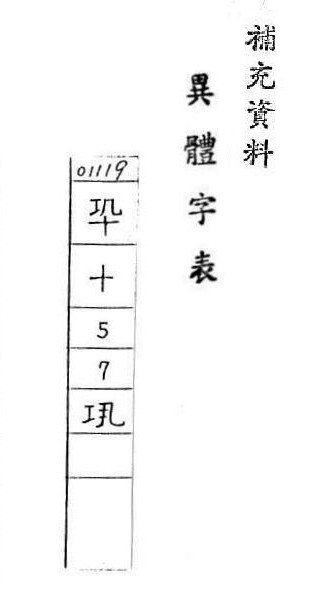 補充資料
異體字表
01119
十
5
7